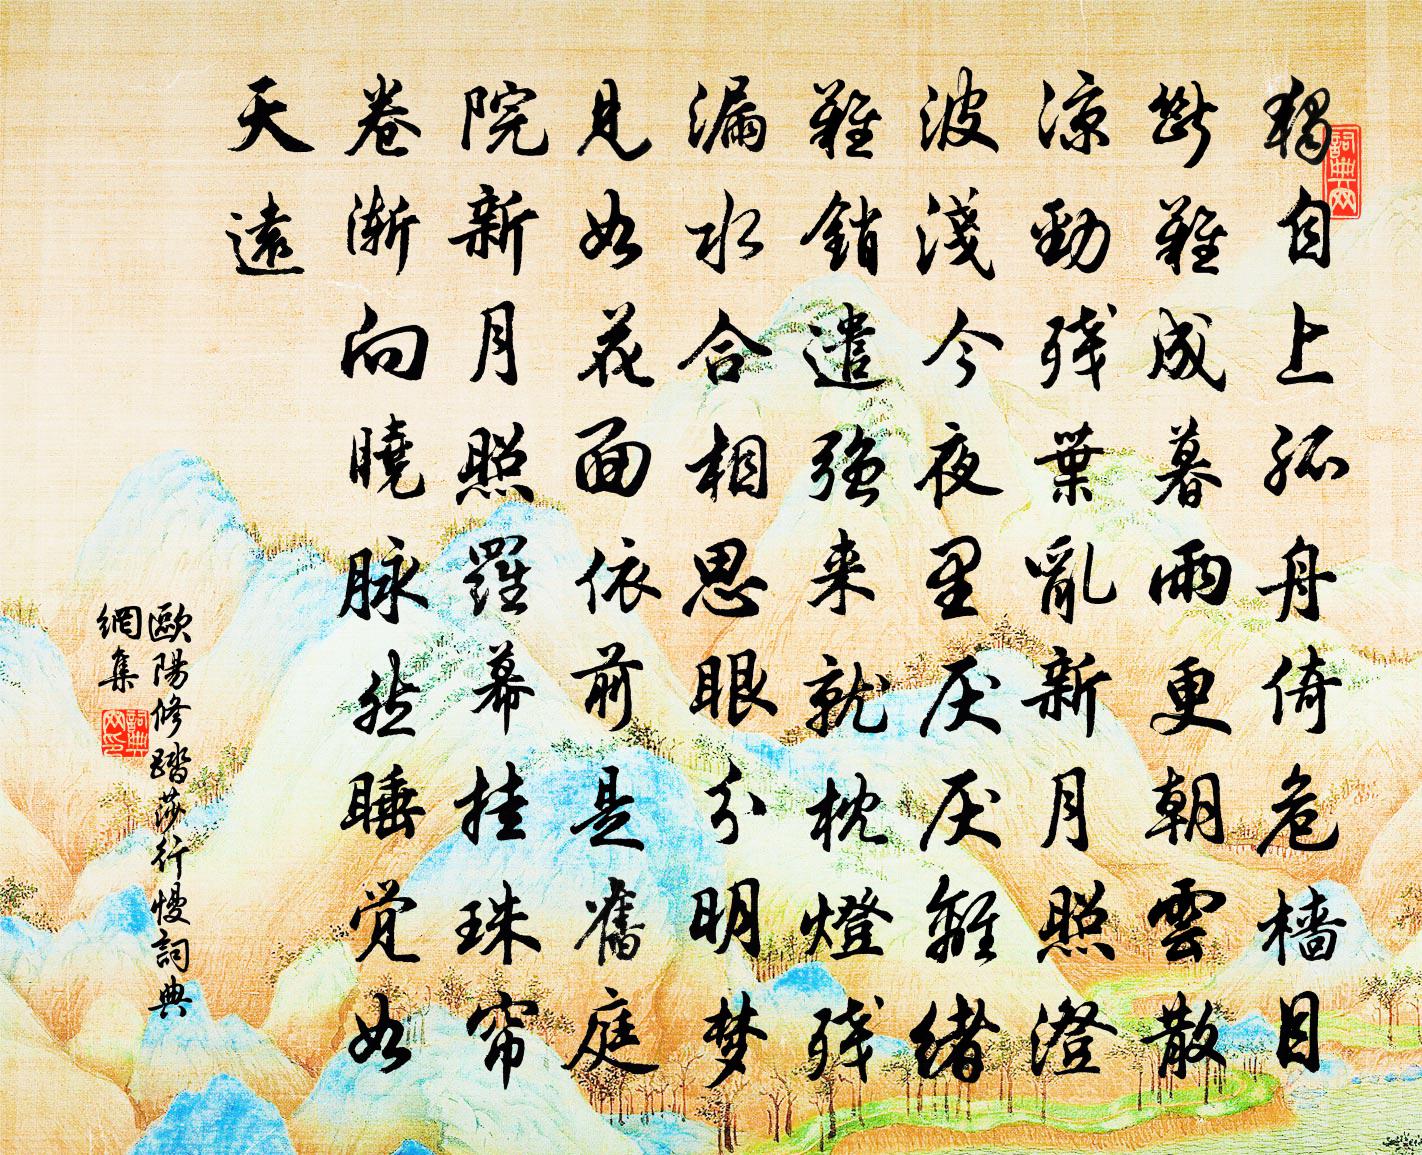 獨自上孤舟倚危檣目
斷難成暮雨更朝雲散
涼勁残葉亂新月照澄
波淺今夜里厌厌離緒
難銷遣强来就枕燈残
漏水合相思眼分明梦
見如花面依前是舊庭
院新月照羅幕挂珠帘
卷渐向曉脉然睡觉如
天遠
歐陽修踏莎行慢詞典
網集
詞典网
詞典网印